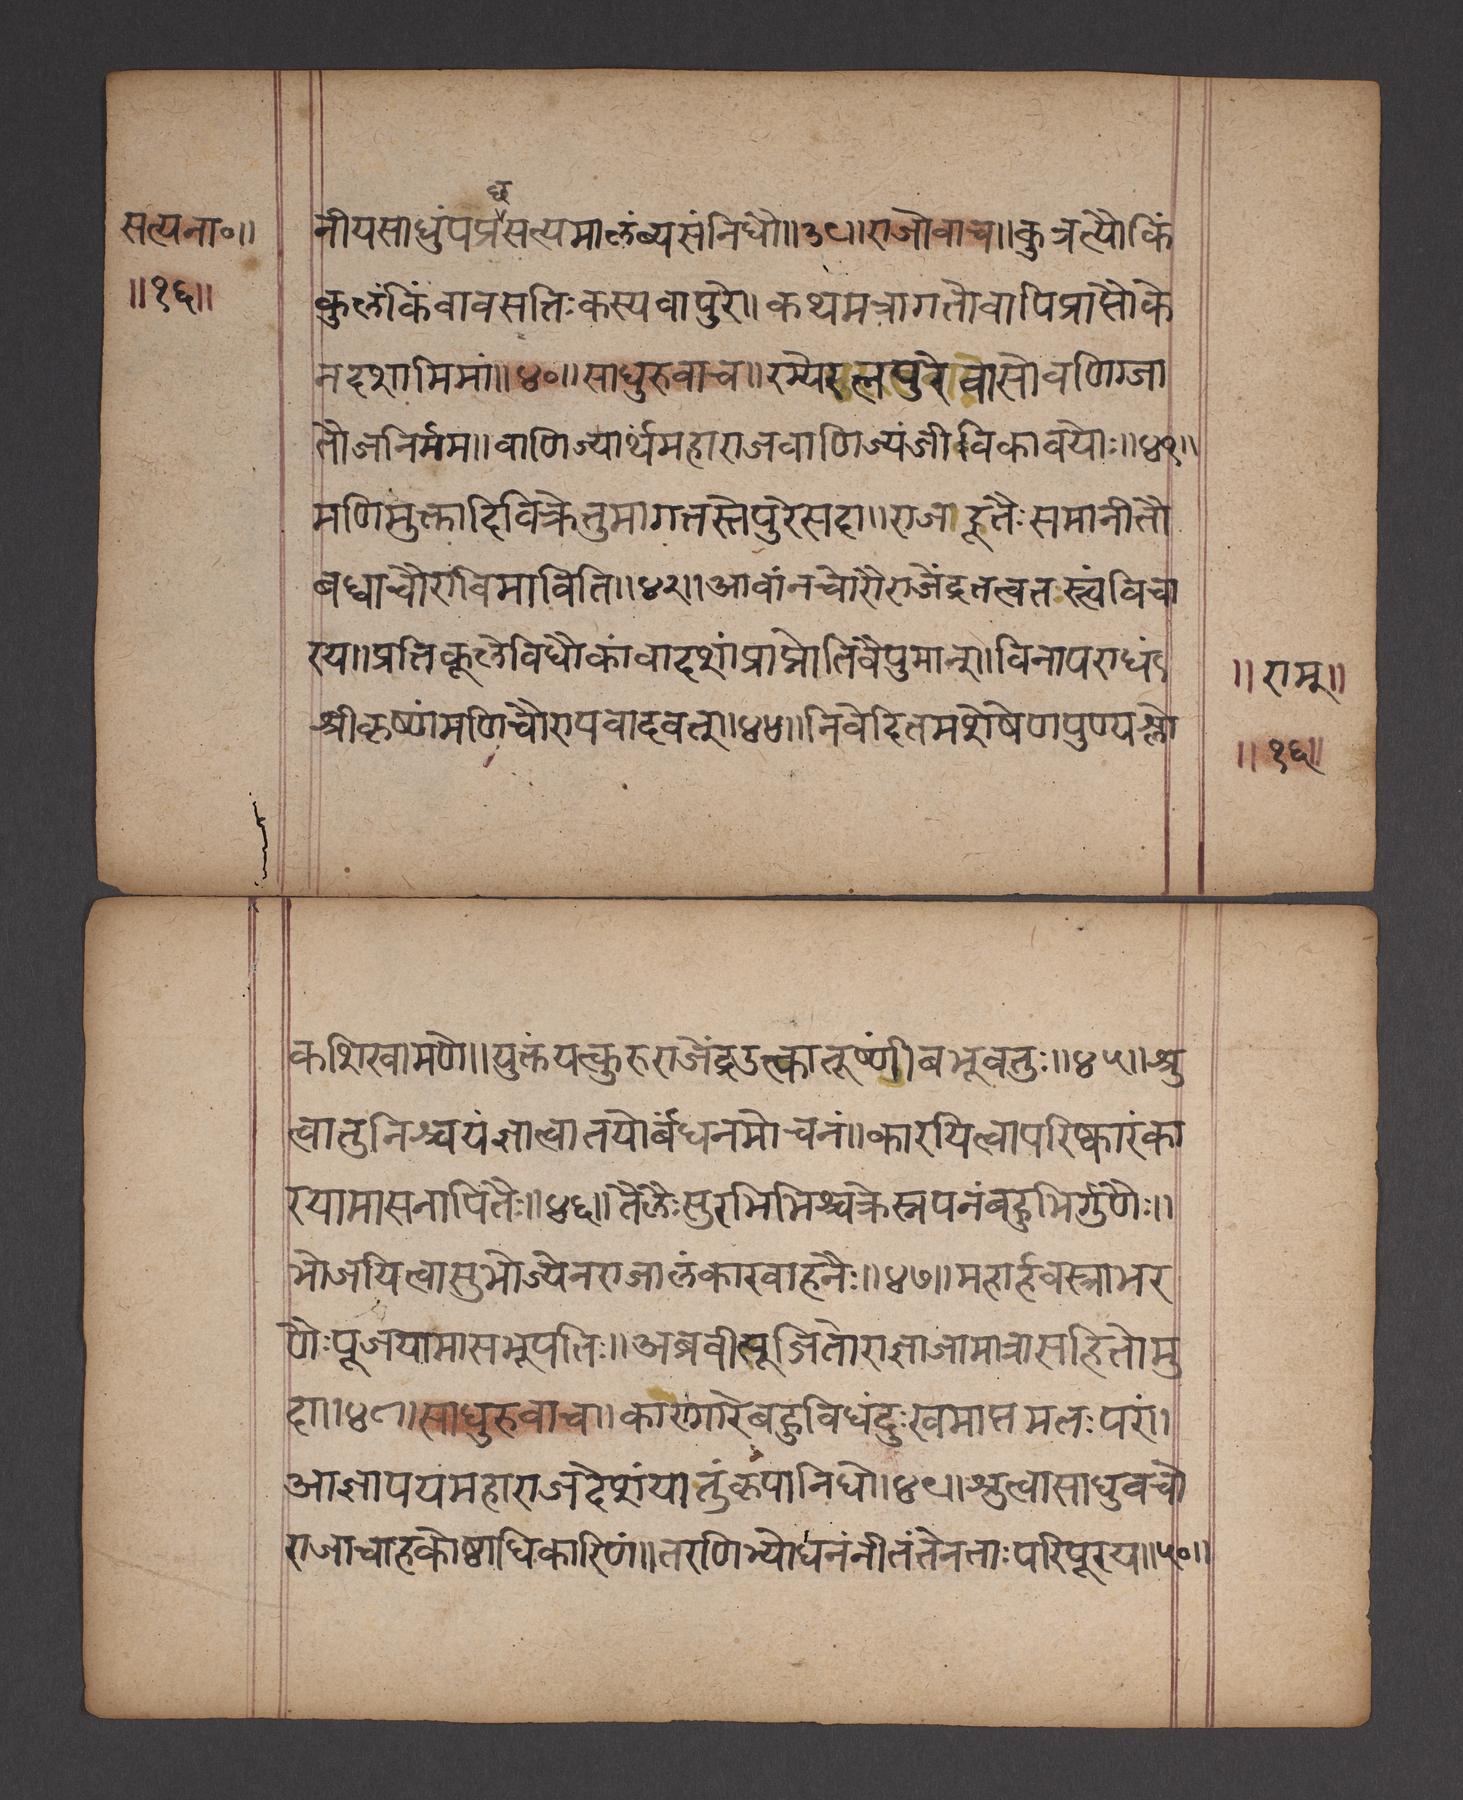 सत्यना॰॥
॥१६॥
छ
नीयसाधुंपप्रसत्यमालंब्यसंनिधौ॥३९॥राजोवाच॥कुत्रत्यौकिं
कुलंकिंवावसतिःकस्यवापुरे॥कथमत्रागतौवापिप्राप्तौके
नदशामिमां॥४०॥साधुरुवाच॥रम्येरत्नपुरेवासोवणिग्जा
तौजनिर्मम॥वाणिज्यार्थंमहाराजवाणिज्यंजीविकावयोः॥४१॥
मणिमुक्तादिविक्रेतुमागतस्तेपुरेसहा॥राजादूतैःसमानीतौ
बध्वाचौराविमाविति॥४२॥आवांनचोरौराजेंद्रतत्वतस्त्वंविचा
रय॥प्रतिकूलेविधौकांवादशांप्राप्नोतिवैपुमान्॥विनापराधं
श्रीकृष्णंमणिचौरापवादवत्॥४४॥निवेदितमशेषेणपुण्यश्लो
॥रामृ॥
॥१६॥
कशिखामणे॥युक्तंयत्कुरुराजेंद्रउत्कातूष्णींबभूवतुः॥४५॥श्रु
त्वातुनिश्चयंज्ञात्वातयोर्बंधनमोचनं॥कारयित्वापरिष्कारंका
रयामासनापितैः॥४६॥तैलैःसुरभिभिश्चक्रेस्नपनंबहुभिर्गुणैः॥
भोजयित्वासुभोज्येनराजालंकारवाहनैः॥४७॥महार्हवस्त्राभर
णैःपूजयामासभूपतिः॥अब्रवीत्पूजितोराज्ञाजामात्रासहितोमु
दा॥४८॥साधुरुवाच॥कारागारेबहुविधंदुःखमाप्तमतःपरं।
आज्ञापयमहाराजदेशंयातुंकृपानिधे॥४९॥श्रुत्वासाधुवचो
राजाचाहकोष्ठाधिकारिणं॥तरणिभ्योधनंनीतंतेनताःपरिपूरय॥५०॥